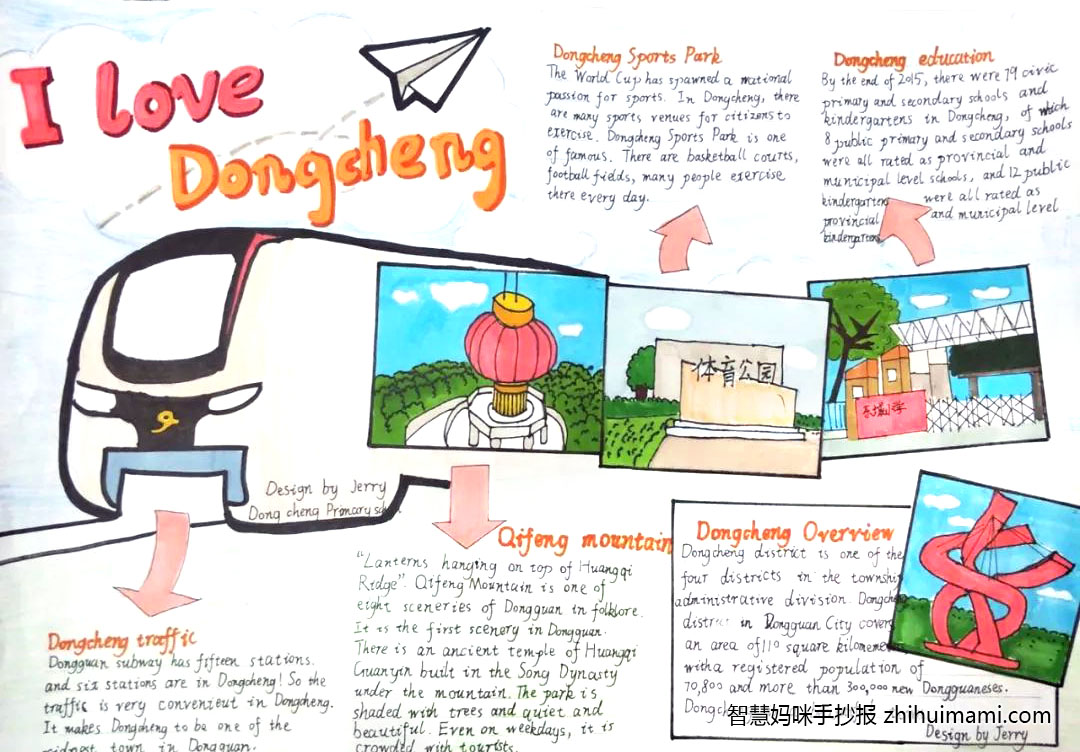 I love
Dongcheng
Dongcheng Sports Park
The World Cup has spawned a national
passion for sports. In Dongcheng, there
are many sports venues for citizens to
exercise. Dongcheng Sports Park is one
of famous. There are basketball courts,
football fields, many people exercise
there every day.
Dongcheng education
By the end of 2015, there were 79 civic
primary and secondary schools and
kindergartens in Dongcheng, of which
8 public primary and secondary schools
were all rated as provincial and
municipal level schools, and 12 public
kindergartens were all rated as
provincial and municipal level
kindergartens
体育公园
Design by Jerry
Dongcheng Primary
Qifeng mountain
"Lanterns hanging on top of Huangqi
Ridge". Qifeng Mountain is one of
eight sceneries of Dongguan in folklore.
It is the first scenery in Dongguan.
There is an ancient temple of Huangqi
Guanyin built in the Song Dynasty
under the mountain. The park is
shaded with trees and quiet and
beautiful. Even on weekdays, it is
crowded with tourists.
Dongcheng traffic
Dongguan subway has fifteen stations.
and six stations are in Dongcheng! So the
traffic is very convenient in Dongcheng.
It makes Dongcheng to be one of the
town in Dongguan.
Dongcheng Overview
Dongcheng district is one of the
four districts in the township
administrative division. Dongcheng
district in Dongguan City covers
an area of 110 square
with a registered population of
70,800 and more than 300,000 new Dongguaneses.
智慧妈咪手抄报 zhihuimami.com
Design by Jerry